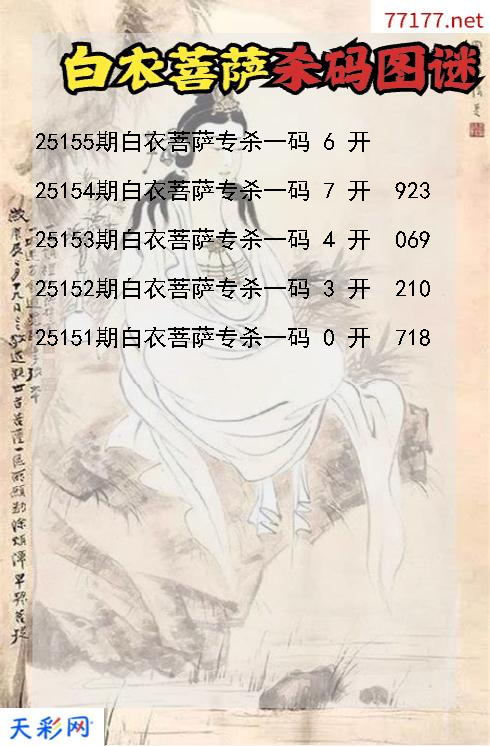 77177.net
白衣菩萨杀码图谜
25155期白衣菩萨专杀一码 6 开
25154期白衣菩萨专杀一码 7 开 923
25153期白衣菩萨专杀一码 4 开 069
25152期白衣菩萨专杀一码 3 开 210
25151期白衣菩萨专杀一码 0 开 718
天彩网